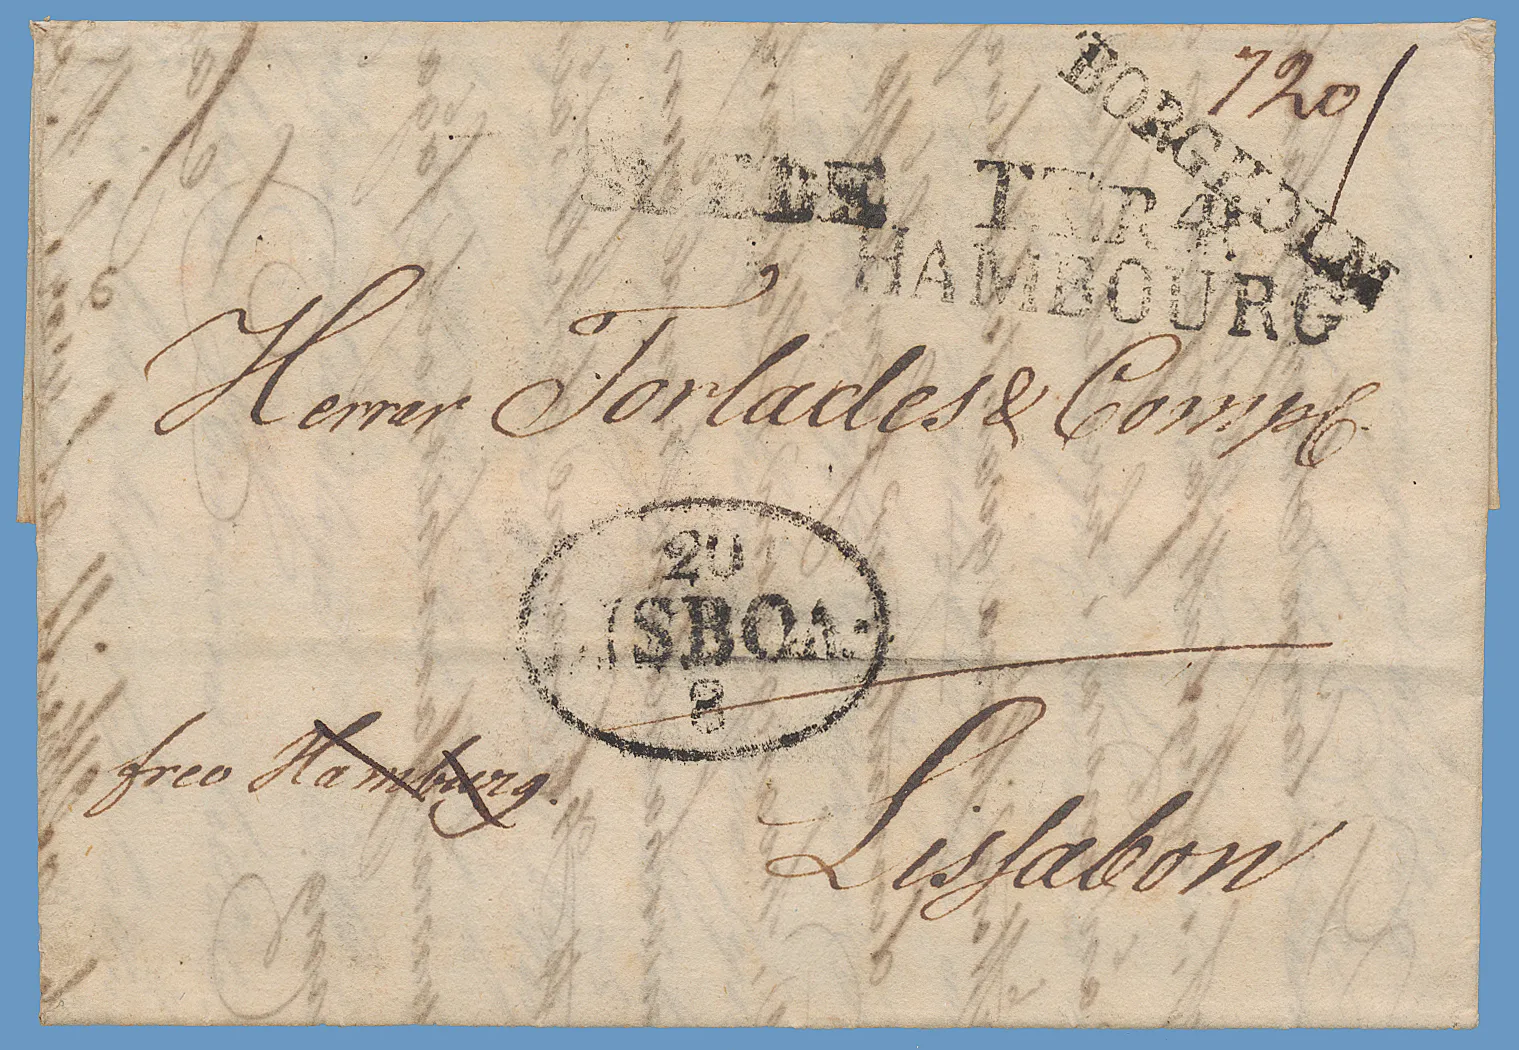 BORGHOLM
720
SUEDE TER 4
HAMBOURG
Herrar Torlades & Comp
20
LISBOA
8
frco Hamburg.
Lissabon